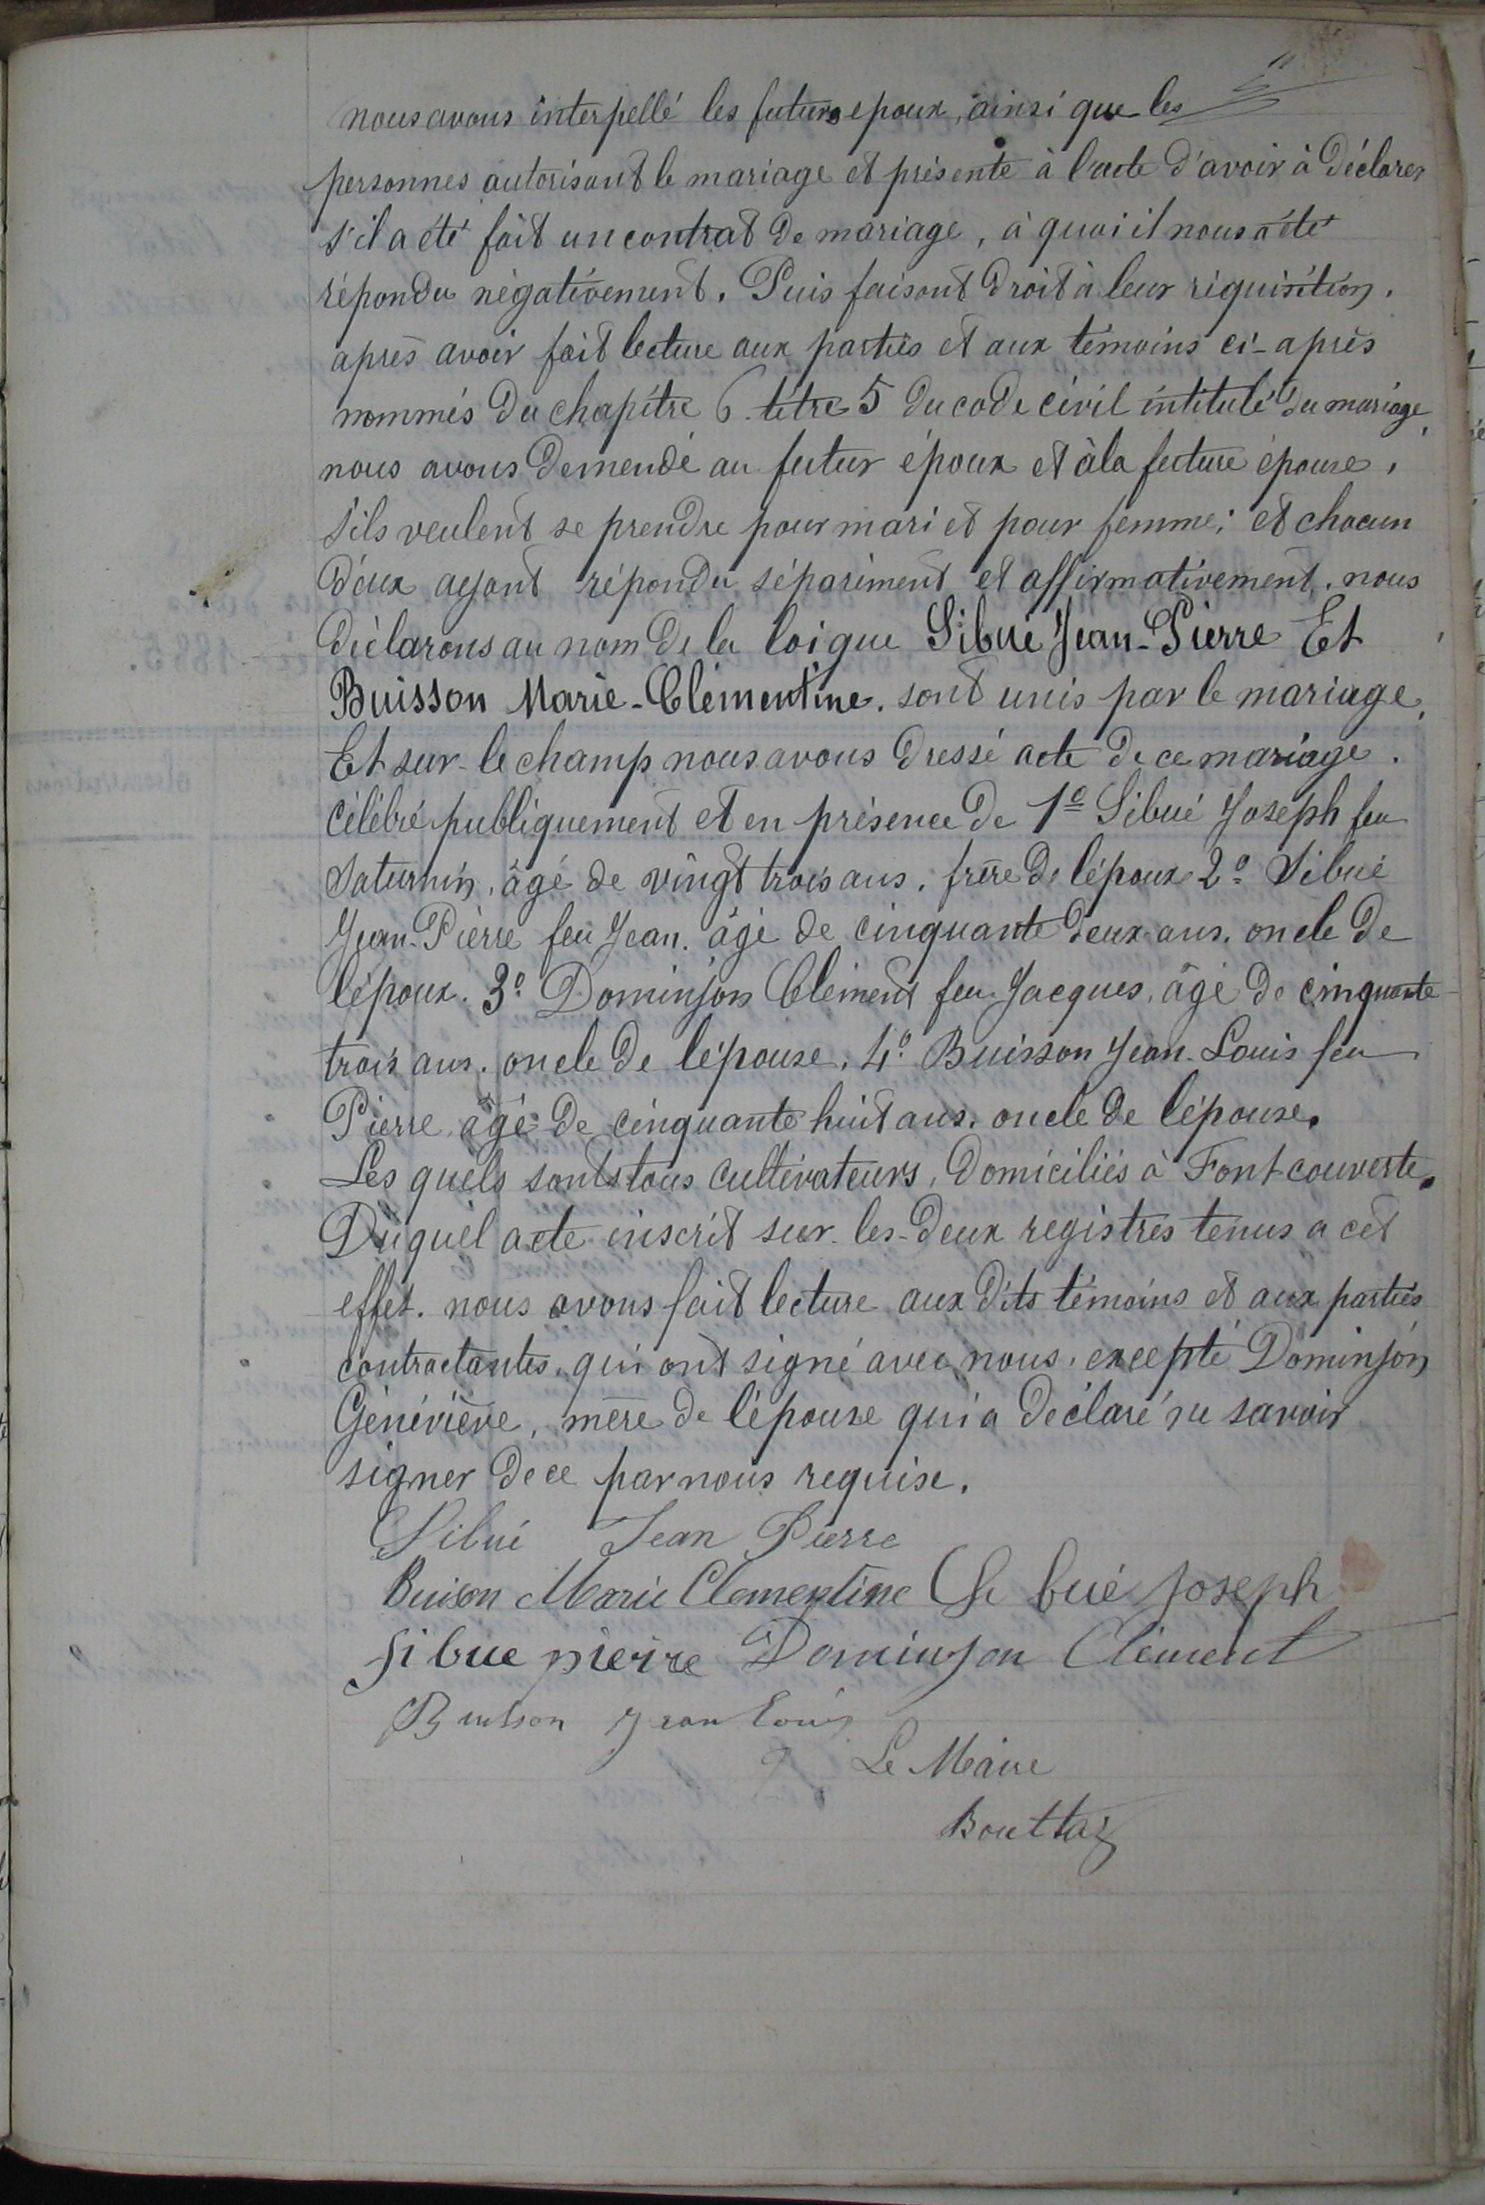 nous avons interpellé les futurs epoux, ainsi que les
personnes autorisant le mariage et présente à l'acte d'avoir à déclarer
s'il a été fait un contrat de mariage, à quoi il nous a été
répondu négativement. Puis faisant droit à leur réquisition.
après avoir fait lecture aux parties et aux témoins ci-après
nommés du chapitre 6 titre 5 du code civil intitulé du mariage,
nous avons demendé au futur époux et à la future épouse,
s'ils veulent se prendre pour mari et pour femme; et chacun
d'eux ayant répondu séparément et affirmativement, nous
déclarons au nom de la loi que Sibué Jean-Pierre Et
Buisson Marie-Clémentine. sont unis par le mariage.
Et sur-le champ nous avons dressé acte de ce mariage.
célébré publiquement et en présence de 1º Sibué Joseph feu
Saturnin, âgé de vingt trois ans, frère de l'époux 2º Sibué
Jean-Pierre feu Jean, âgé de cinquante deux ans, oncle de
l'époux. 3º Dominjon Clément feu Jacques, âgé de cinquante
trois ans, oncle de l'épouse. 4º Buisson Jean-Louis feu
Pierre, âgé de cinquante huit ans, oncle de l'épouse.
Les quels sont tous cultivateurs, domiciliés à Fontcouverte.
Duquel acte inscrit sur les deux registres tenus a cet
effet. nous avons fait lecture aux dits témoins et aux parties
contractantes, qui ont signé avec nous, excepté Dominjon
Généviève, mère de l'épouse qui a déclaré ne savoir
signer de ce par nous requise.
Sibué Jean Pierre
Buison Marie Clementine Si bué Joseph
Sibue pierre Dominjon Clément
Buisson Jean Louis
Le Maire
Bouttaz